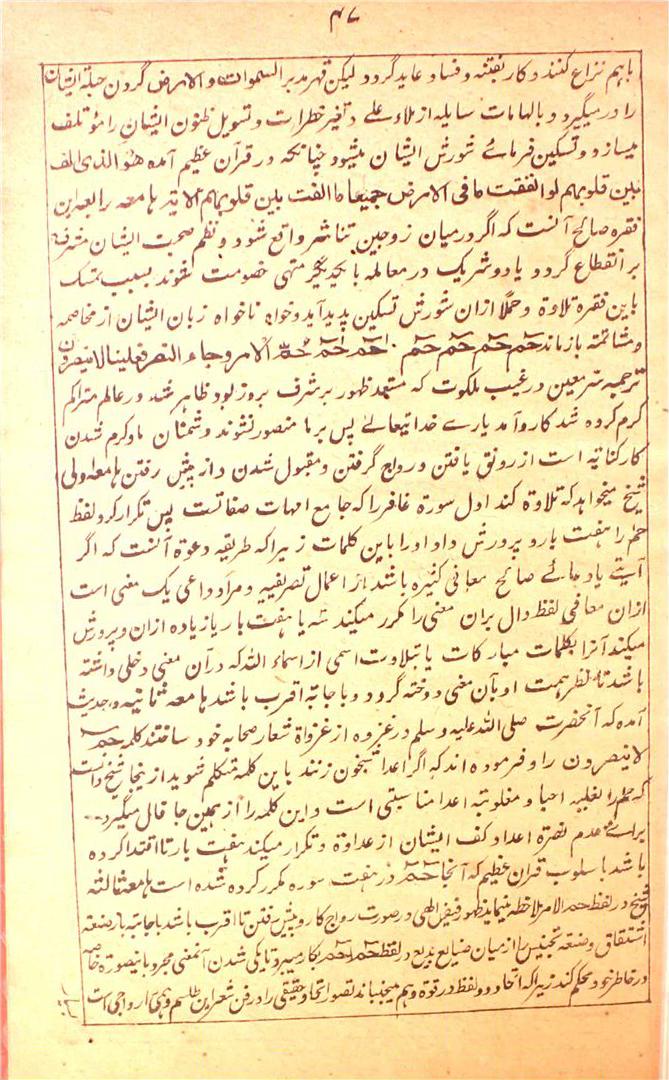 ۴۷
باہم نزاع کنند و کار بفتنہ و فساد عاید گردد لیکن قہر مدبر السموات والارض گردن جبلۃ ایشان
را در میگیرد و بالہامات سایلہ از ملاء علے و تغیر خطرات و تسویل ظنون ایشان را مؤتلف
میسازد و تسکین فرمائے شورش ایشان میشود چنانکہ در قرآن عظیم آمدہ ھو الذی الف
بین قلوبہم لو انفقت مافی الارض جمیعا ما الفت بین قلوبہم الایۃ ہامعہ رابعہ این
فقرہ صالح آنست کہ اگر درمیان زوجین تناشر واقع شود و نظم صحبت ایشان مشرف
بر انقطاع گردد یا دو شریک در معاملہ با یکدیگر منتہی خصومت شوند بسبب تمسک
باین فقرہ تلاوۃ و حملا ازان شورش تسکین پدید آید و خواہ ناخواہ زبان ایشان از مخاصمہ
و مشاتمہ باز ماند حم حم حم حم حم حم حم حم الامر وجاء النصر فعلینا لاینصرون
ترجمہ سر معین در غیب ملکوت کہ مستعد ظہور بر شرف بروز بود ظاہر شد و در عالم متراکم
گرم کردہ شد کار و آمد یارے خدا تیعالے پس بر ما منصور نشوند دشمنان ما و گرم شدن
کار کنایہ است از رونق یافتن و رواج گرفتن و مقبول شدن و از پیش رفتن ہامعہ ولی
شیخ میخواہد کہ تلاوۃ کند اول سورۃ غافر را کہ جامع امہات صفاتست پس تکرار کرد لفظ
حم را ہفت بار و پرورش داد او را باین کلمات زیرا کہ طریقہ دعوۃ آنست کہ اگر
آیتے یا دعائے صالح معانی کثیرہ باشد از اعمال تصریفیہ و مراد داعی یک معنی است
ازان معانی لفظ دال بران معنی را مکرر میکند سہ یا ہفت بار یا زیادہ ازان و پرورش
میکند آنرا بکلمات مبارکات یا بتلاوت اسمی از اسماء اللہ کہ در آن معنی دخلی داشتہ
باشد تا نظر ہمت او بآن معنی دوختہ گردد و با جابۃ اقرب باشد ہامعہ ثانیہ در حدیث
آمدہ کہ آنحضرت صلی اللہ علیہ وسلم در غزوہ از غزواۃ شعار صحابہ خود ساختند کلمہ حم
لاینصرون را و فرمودہ اند کہ اگر اعدا شبخون زنند باین کلمہ متکلم شوید از ینجا شیخ دانست
کہ حم را بغلبہ احبا و مغلوبیۃ اعدا مناسبتی است و این کلمہ را از ہمین جا فال میگیرد
برائے عدم نصرۃ اعدا و کف ایشان از عداوۃ و تکرار میکند ہفت بار تا اقتدا کردہ
باشد باسلوب قرآن عظیم کہ آنجا حم در ہفت سورہ مکرر کردہ شدہ است ہامعہ ثالثہ
شیخ در لفظ حم الامر ملاحظہ مینماید ظہور فیض الہی در صورت رواج کار و پیش رفتن تا اقرب باشد باجابۃ باز صنعۃ
اشتقاق و صنعۃ تجنیس را از میان صنایع بدیع در لفظ حم حم بکار میبرد تا یکی شدن آنمعنی مجرد با بصورۃ خاصہ
در خاطر و محکم کند زیرا کہ اتحاد دو لفظ در قوۃ وہم میجنباند تصور اتحاد حقیقی را در فن شعر این طلسم وہمی را رواجی است